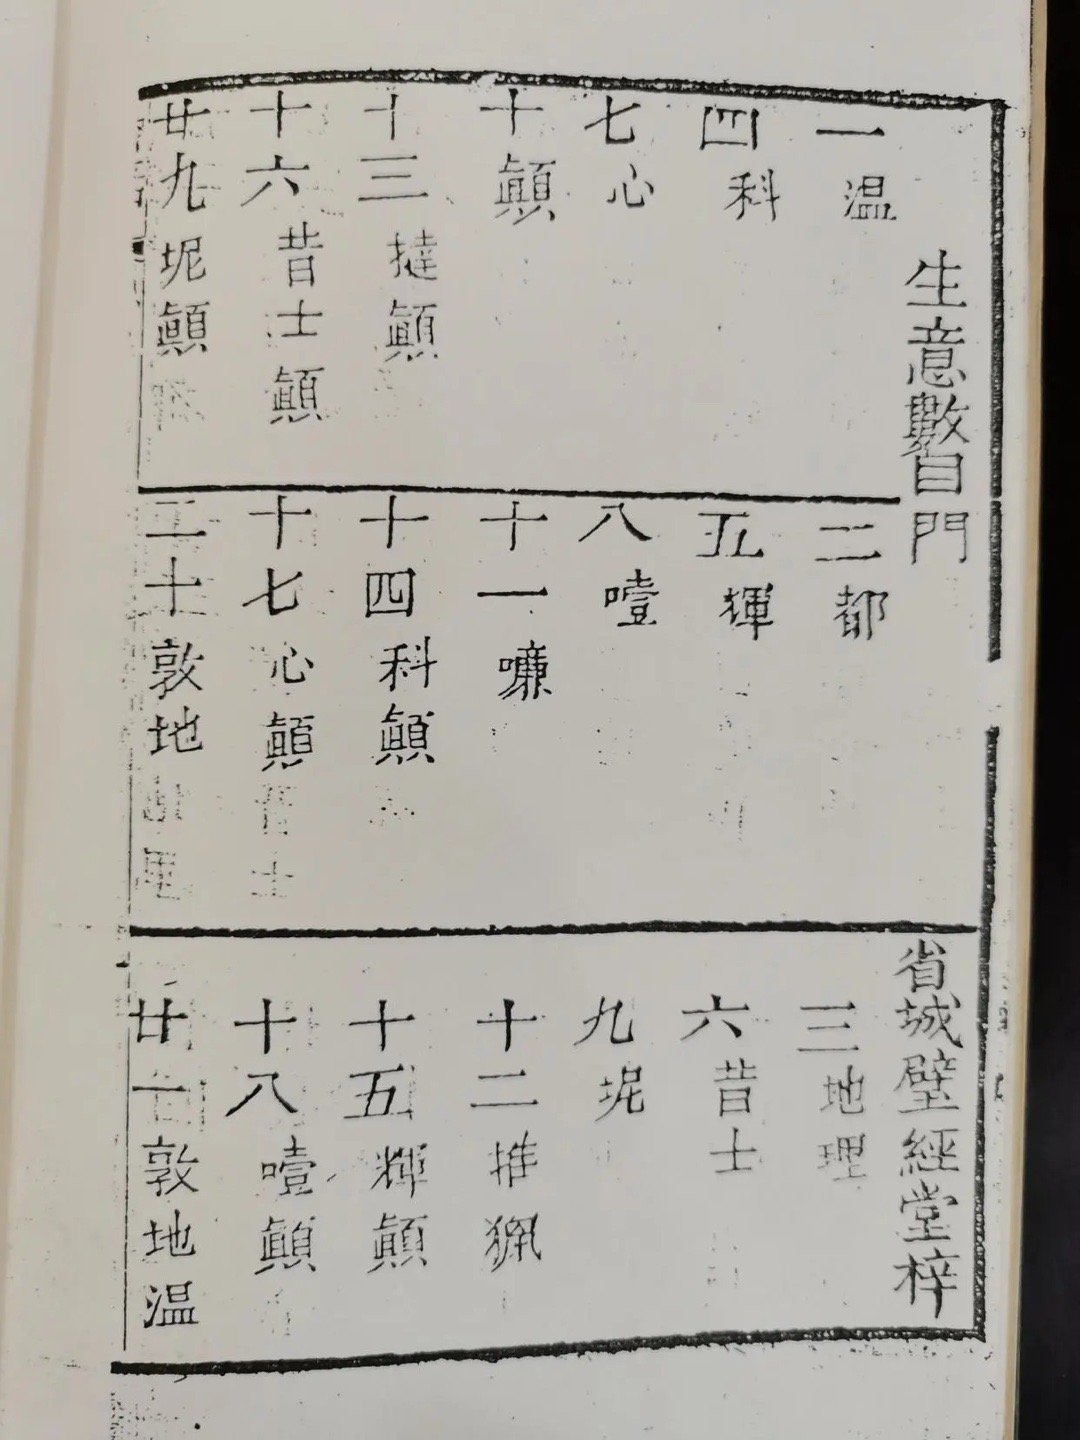 生意數目門
省城璧經堂梓
一温
二都
三地理
四科
五揮
六昔士
七心
八噎
九坭
十顛
十一
十二推
十三撻顛
十四科顛
十五輝顛
十六昔士顛
十七心顛
十八噎顛
廿九坭顛
二十敦地
廿一敦地温